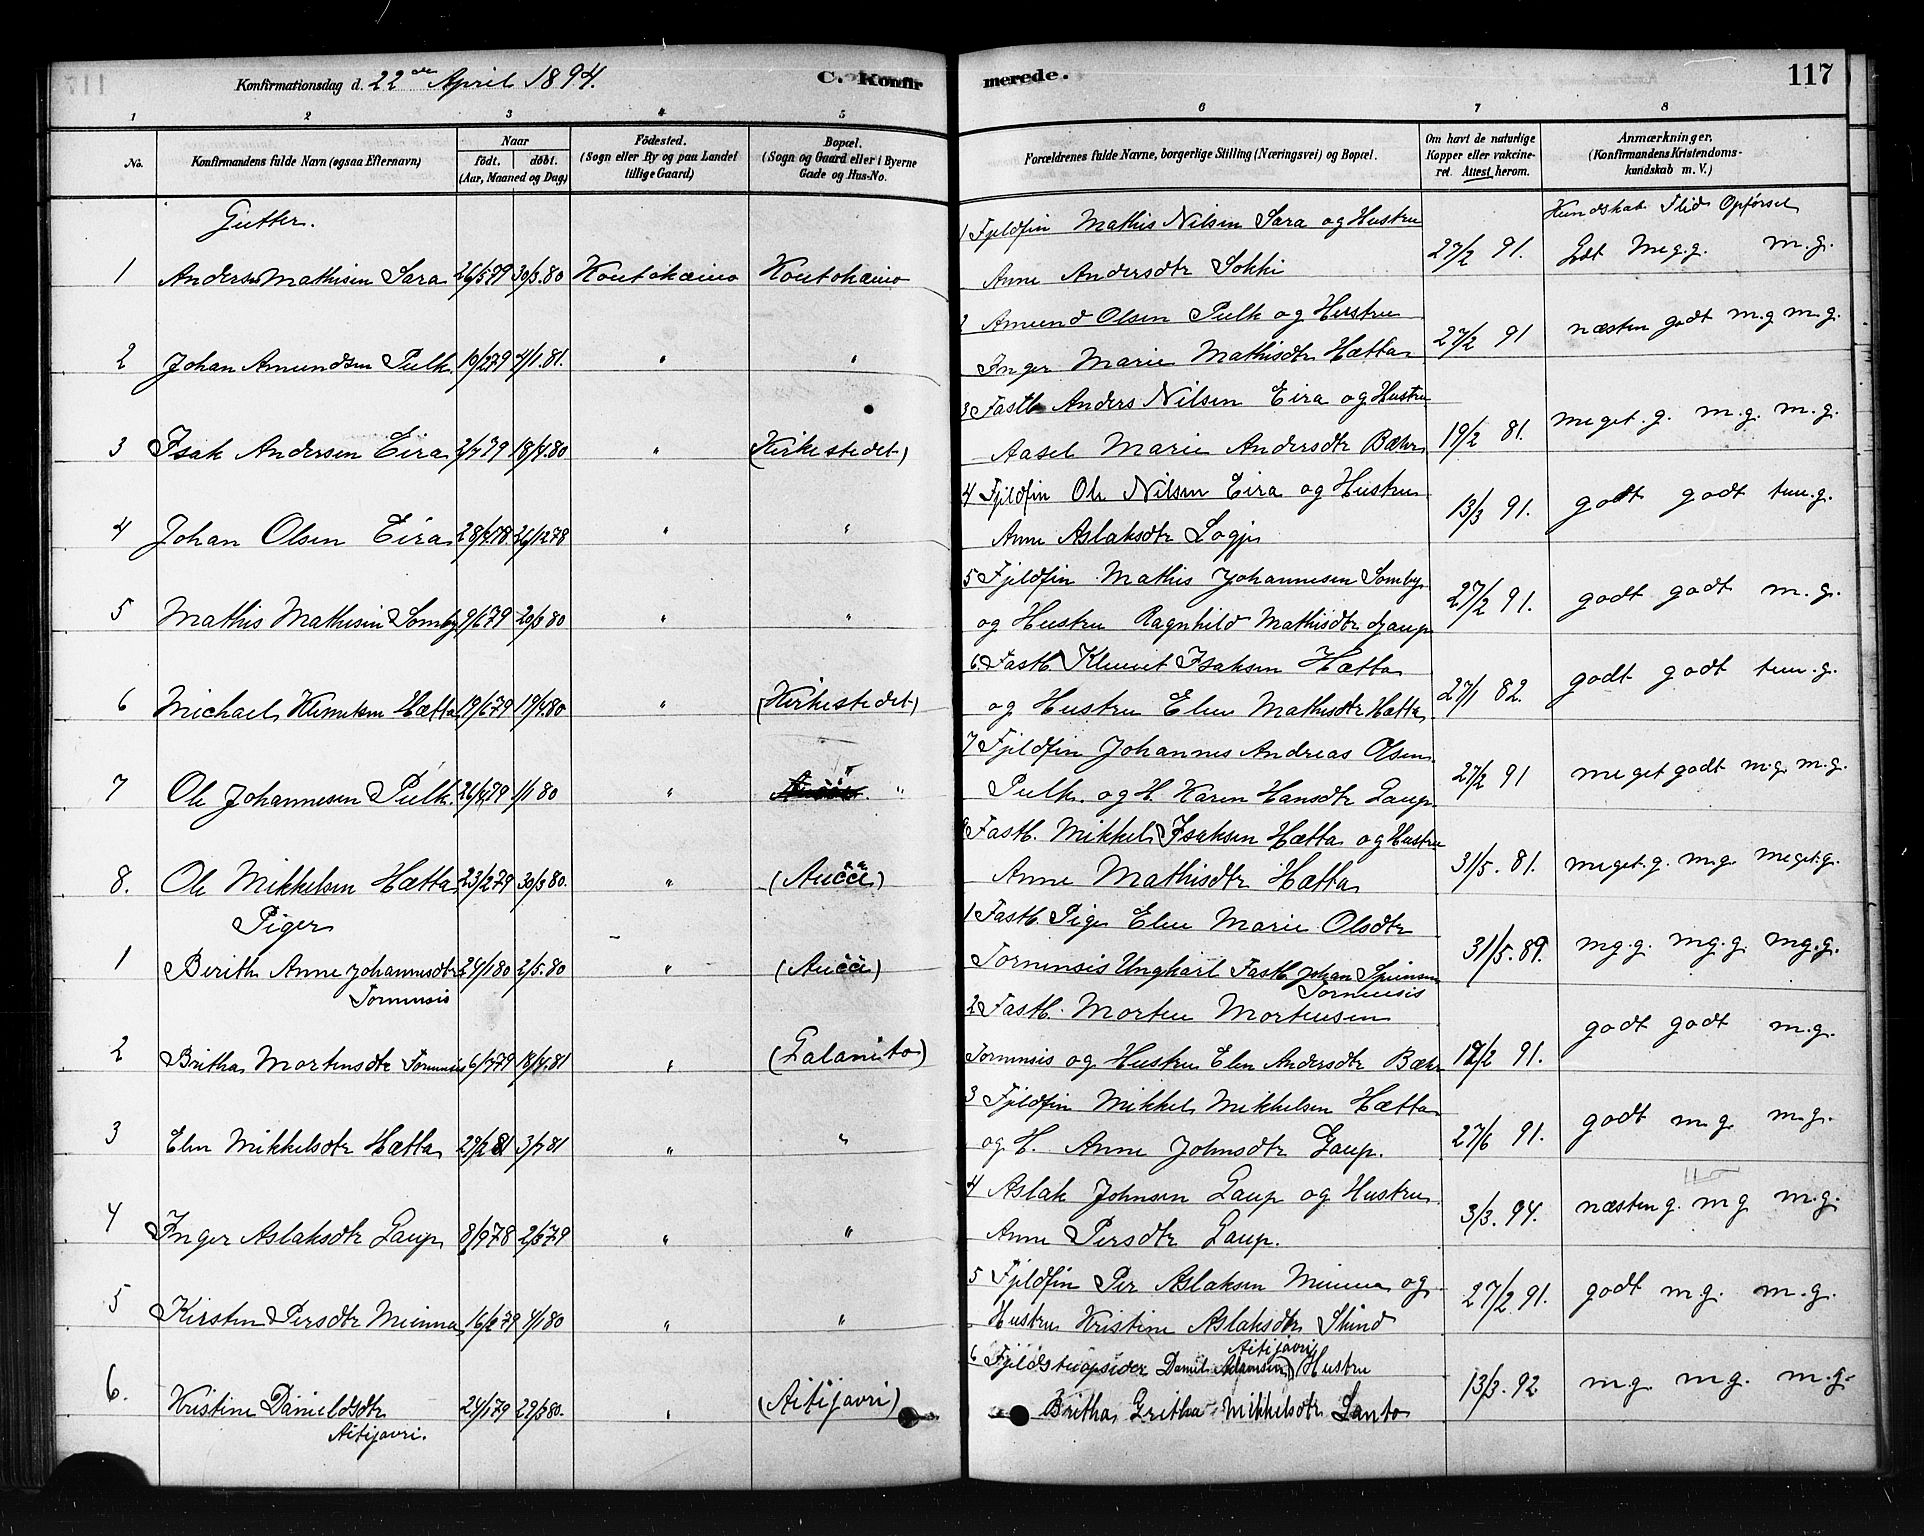 Konfirmationsdag d. 22de April 1894. C. Konfirmerede. 117
1 2 3 4 5 6 7 8
No. Konfirmandens fulde Navn (ogsaa Efternavn) Naar födt. döbt. (Aar, Maaned og Dag) Födested. (Sogn eller By og paa Landet tillige Gaard) Bopæl. (Sogn og Gaard eller i Byerne Gade og Hus-No. Forældrenes fulde Navne, borgerlige Stilling (Næringsvei) og Bopæl. Om havt de naturlige Kopper eller vakcineret. Attest herom. Anmærkninger. (Konfirmandens Kristendomskundskab m. V.)
Gutter. Kundskab Flid Opførsel
1 Anders Mathisen Sara 26/5 79 30/3.80 Koutokæino Koutokæino 1 Fjeldfin Mathis Nilsen Sara og Hustru 27/2 91. Gdt Meg.g. m.g.
Anne Andersdtr Sokki
2 Johan Amundsen Pulk 19/2 79 4/1.81. " " 2 Amund Olsen Pulk og Hustru 27/2 91 næsten godt m.g m.g.
Inger Marie Mathisdtr Hætta
3 Isak Andersen Eira 2/7 79 18/4.80 " (Kirkestedet) 3 Fastb. Anders Nilsen Eira og Hustru 19/2 81. meget.g. m.g. m.g.
Aasel Marie Andersdtr Bæhr
4 Johan Olsen Eira 28/4 78. 26/12 78 " " 4 Fjeldfin Ole Nilsen Eira og Hustru 13/3 91. godt godt tem.g.
Anne Aslaksdtr Logje
5 Mathis Mathisen Somby 9/6 79 20/3 80 " " 5 Fjeldfin Mathis Johannesen Somby 27/2 91. godt godt m.g.
og Hustru Ragnhild Mathisdtr Gaup
6 Michael Klemetsen Hætta 19/6 79 19/4.80 " (Kirkestedet) 6. Fastb. Klemet Isaksen Hætta 27/1 82. godt godt tem.g.
og Hustru Elen Mathisdtr Hætta
7 Ole Johannesen Pulk. 26/4 79 1/1 80 " " 7 Fjeldfin Johannes Andreas Olsen 27/2 91 meget godt m.g. m.g.
Pulk. og H. Karen Hansdtr Gaup.
8. Ole Mikkelsen Hætta 23/2 79 30/3 80. " (Aučči) 8 Fastb. Mikkel Isaksen Hætta og Hustru 31/5. 81. meget.g. m.g. meget.g.
Anne Mathisdtr Hætta
Piger
1 Berith Anne Johannesdtr 24/1 80 2/5.80 " (Aučči) 1 Fastb. Pige Elen Marie Olsdtr 31/5.89. mg.g. mg.g. mg.g.
Tornensis Tornensis Ungkarl Fastb. Johan Tornensis
2 Britha Mortensdtr Tornensis 6/7 79 18/4.81 " (Galanito) 2 Fastb. Morten Mortensen 19/2 91. godt godt m.g.
Tornensis og Hustru Elen Andersdtr Bæhr
3 Elen Mikkelsdtr Hætta 29/2 81 3/7 81 " " 3 Fjeldfin Mikkel Mikkelsen Hætta 27/6 91. godt m.g. m.g.
og H. Anne Johnsdtr Gaup.
4 Inger Aslaksdtr Gaup 8/9 78 2/3 79 " " 4 Aslak Johnsen Gaup og Hustru 3/3. 94. næsten g. m g m.g.
Anne Persdtr Gaup.
5 Kirsten Persdtr Mienna 16/6 79 4/1 80 " " 5 Fjeldfin Per Aslaksen Mienna og 27/2 91. godt m g. m.g.
Hustru Kristine Aslaksdtr Skind
6. Kristine Danielsdtr 24/1 79 29/3 80. " (Aitijavri) 6 Fjeldstuopsider Daniel Adamsen Aitijavri Hustru 13/3. 92 m.g. m.g. m.g.
Aitijavri. Britha Gritha Mikkelsdtr Lanto